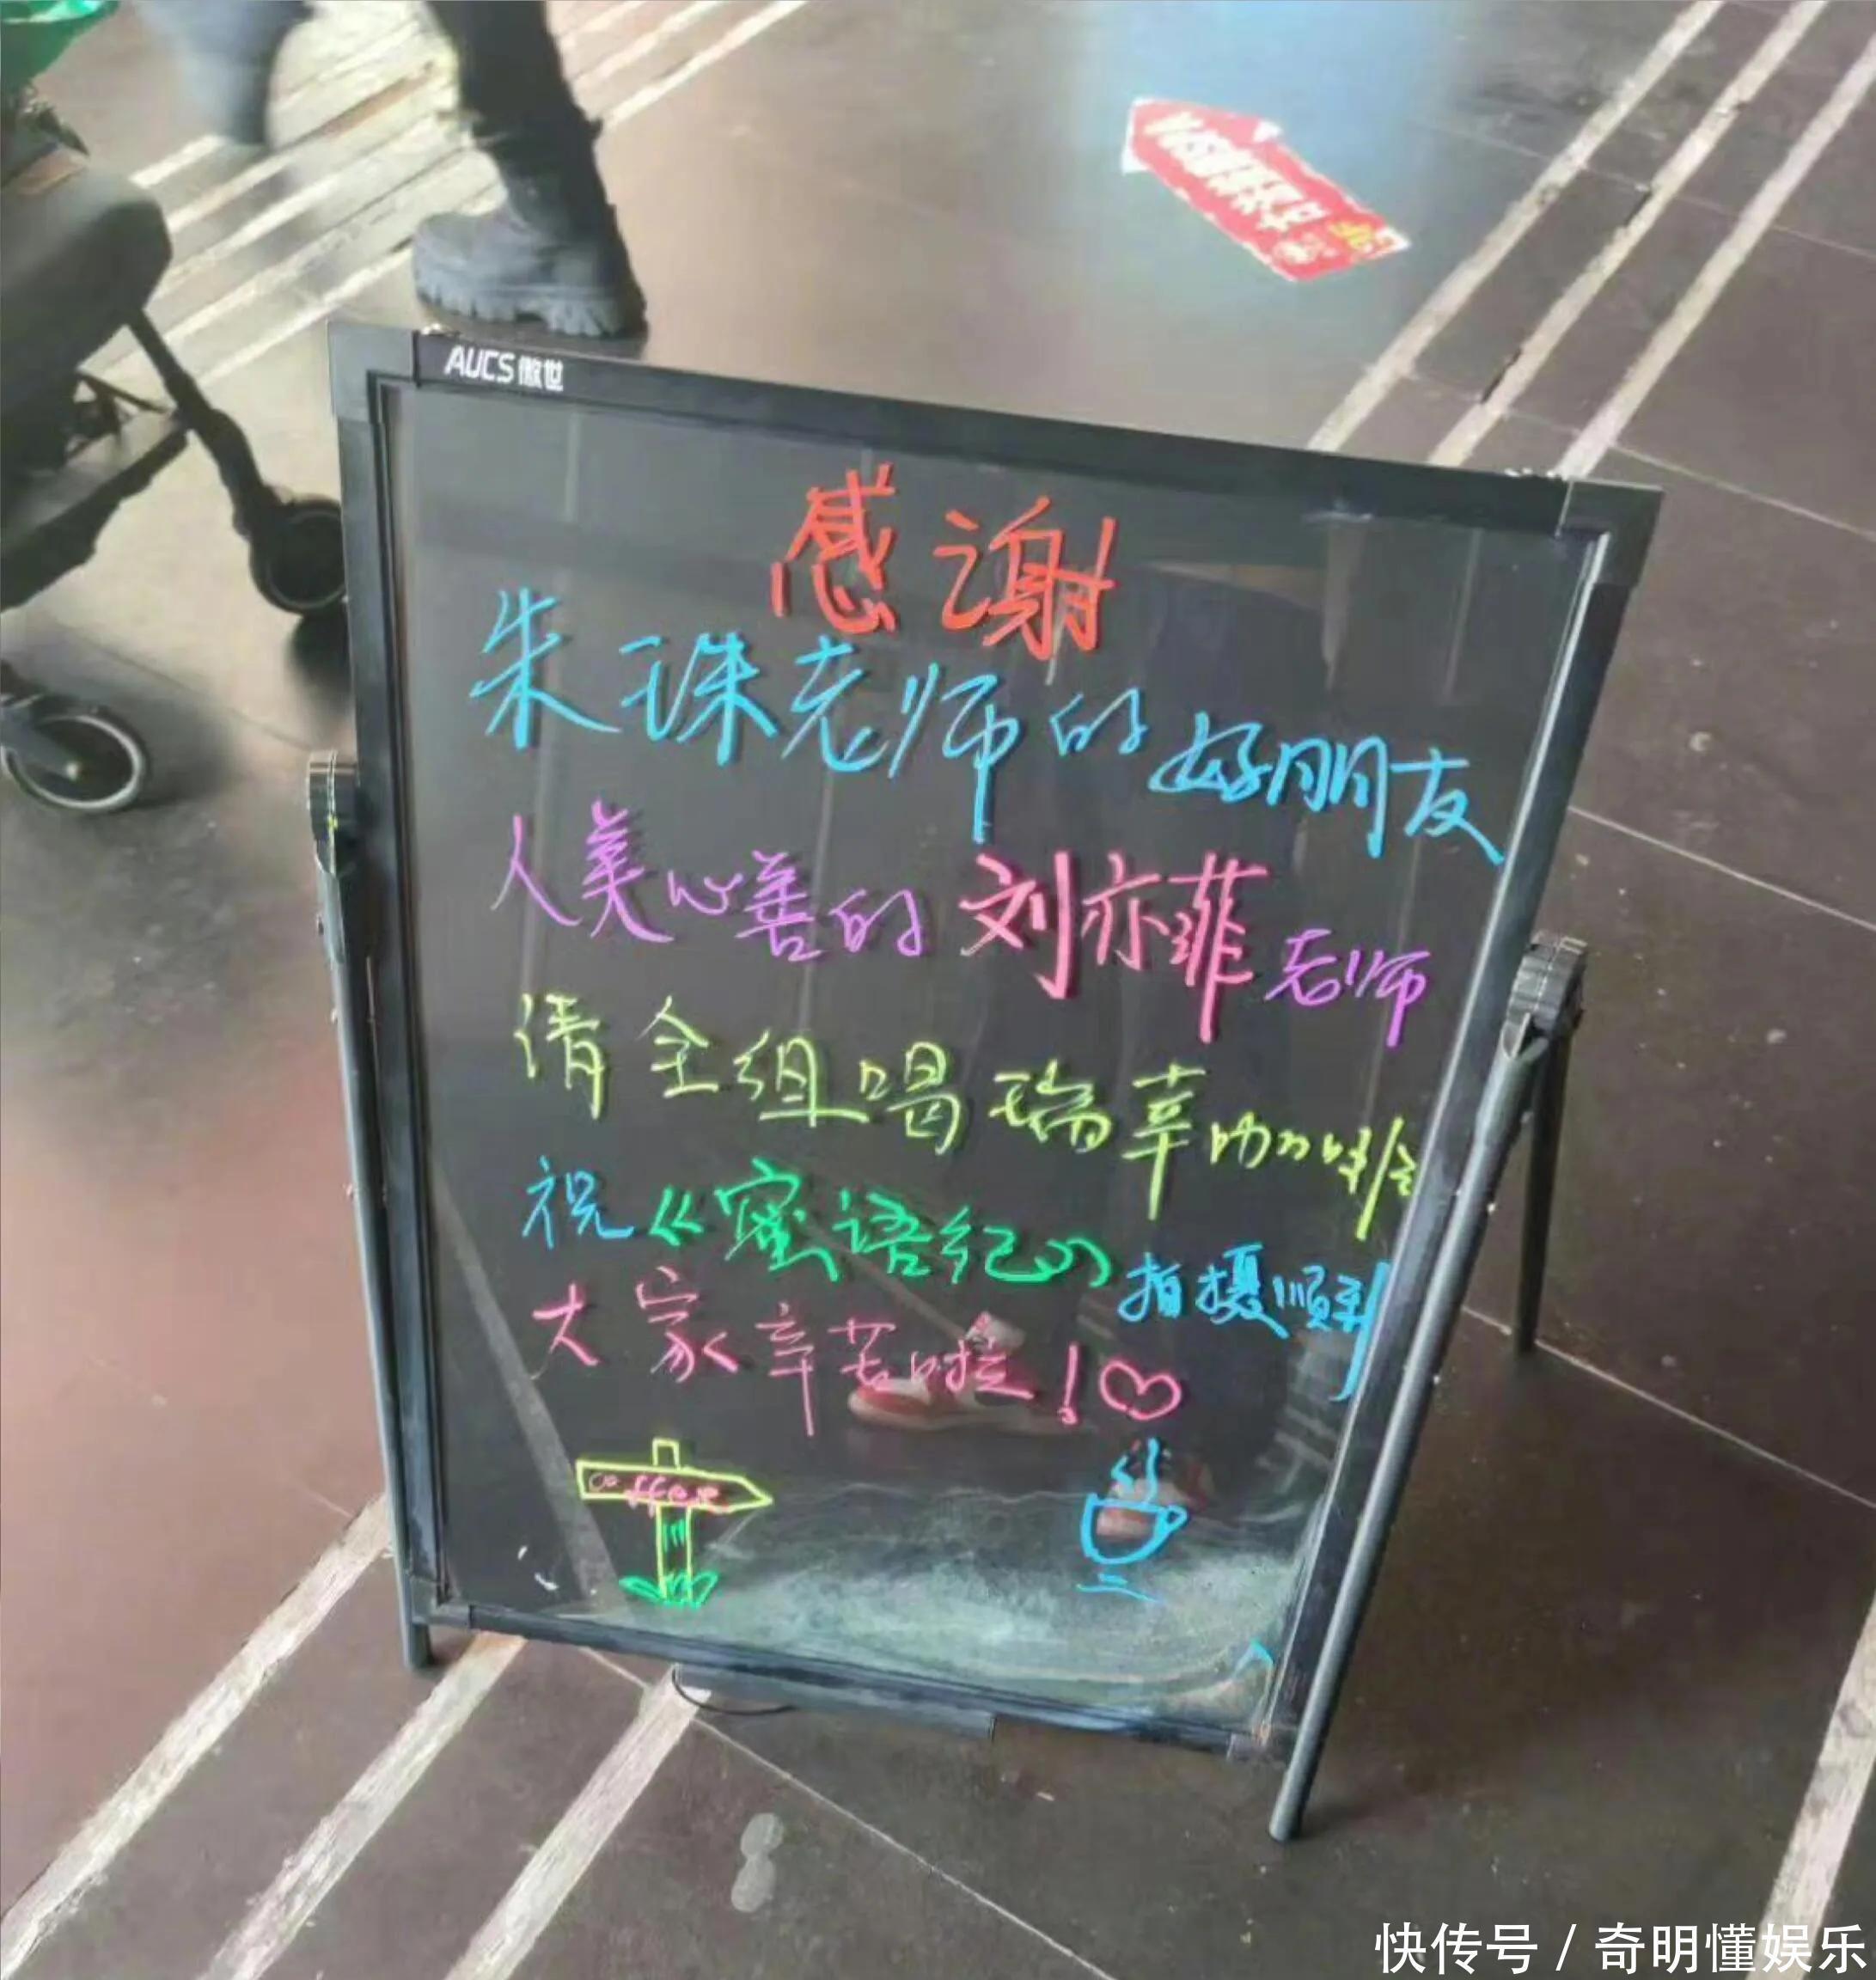 AUCS 傲世
感谢
朱珠老师的好朋友
人美心善的刘亦菲老师
请全组喝瑞幸咖啡
祝《蜜语纪》拍摄顺利
大家辛苦啦！♡
coffee
快传号 / 奇明懂娱乐